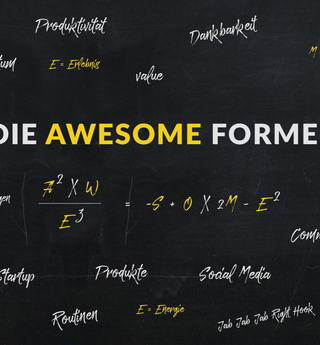 Produktivität
Dankbarkeit
M
um
E = Erlebnis
value
DIE AWESOME FORME
A² X W
= -S + O X 2M - E²
E³
en
Com
Startup
Produkte
Social Media
Routinen
E = Energie
Jab Jab Jab Right Hook